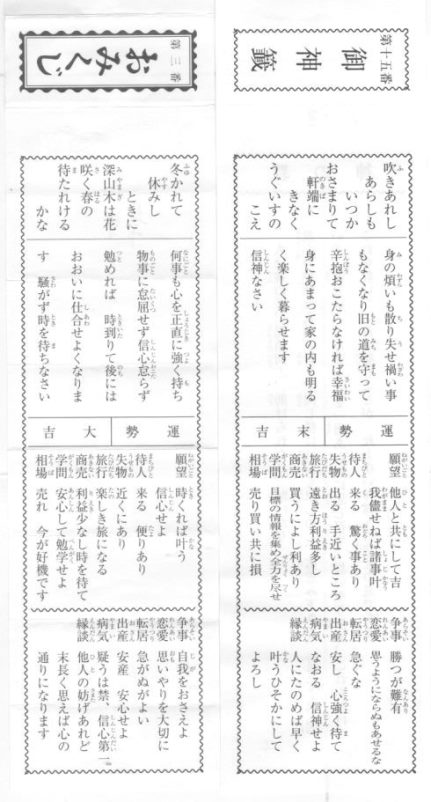 第十五番
御神籤
吹きあれし
あらしも
いつか
おさまりて
軒端に
きなく
うぐいすの
こえ
身の煩いも散り失せ禍い事
もなくなり旧の道を守って
辛抱おこたらなければ幸福
身にあまって家の内も明る
く楽しく暮らせます
信神なさい
運勢 末吉
願望 他人と共にして吉
我儘せねば諸事叶
待人 来る 驚く事あり
失物 出る 手近いところ
旅行 遠き方利益多し
商売 買うによし利あり
学問 目標の情報を集め全力を尽せ
相場 売り買い共に損
争事 勝つが難有
恋愛 思うようにならぬもあせるな
転居 急ぐな
出産 安し 心強く待て
病気 なおる 信神せよ
縁談 人にたのめば早く
叶うひそかにして
よろし
第三番
おみくじ
冬かれて
休みし
ときに
深山木は花
咲く春の
待たれける
かな
何事も心を正直に強く持ち
物事に怠屈せず信心怠らず
勉めれば 時到りて後には
おおいに仕合せよくなりま
す 騒がず時を待ちなさい
運勢 大吉
願望 時くれば叶う
信心せよ
待人 来る 便りあり
失物 近くにあり
旅行 楽しき旅になる
商売 利益少なし時を待て
学問 安心して勉学せよ
相場 売れ 今が好機です
争事 自我をおさえよ
恋愛 思いやりを大切に
転居 急がぬがよい
出産 安産 安心せよ
病気 疑うは禁、信心第一。
縁談 他人の妨げあれど
末長く思えば心の
通りになります